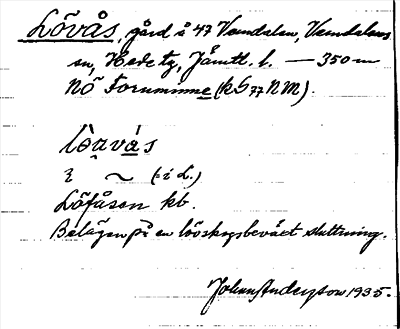 Lövås, gård å 47 Vemdalen, Vemdalens
sn, Hede tg, Jämtl. l. — 350 m
NÖ Fornminne (kG77NM).
i ~ (: i L.)
Löfåsen kb.
Belägen på en lövskogsbeväxt sluttning.
Johan Anderson 1935.